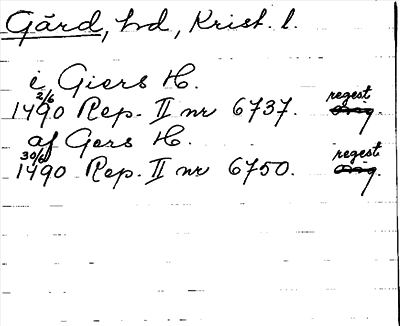 Gārd, hd, Krist. l.
i Giers H.
2/6 1490 Rep. II nr 6737. regest orig.
af Gers H.
30/6 1490 Rep. II nr 6750. regest orig.